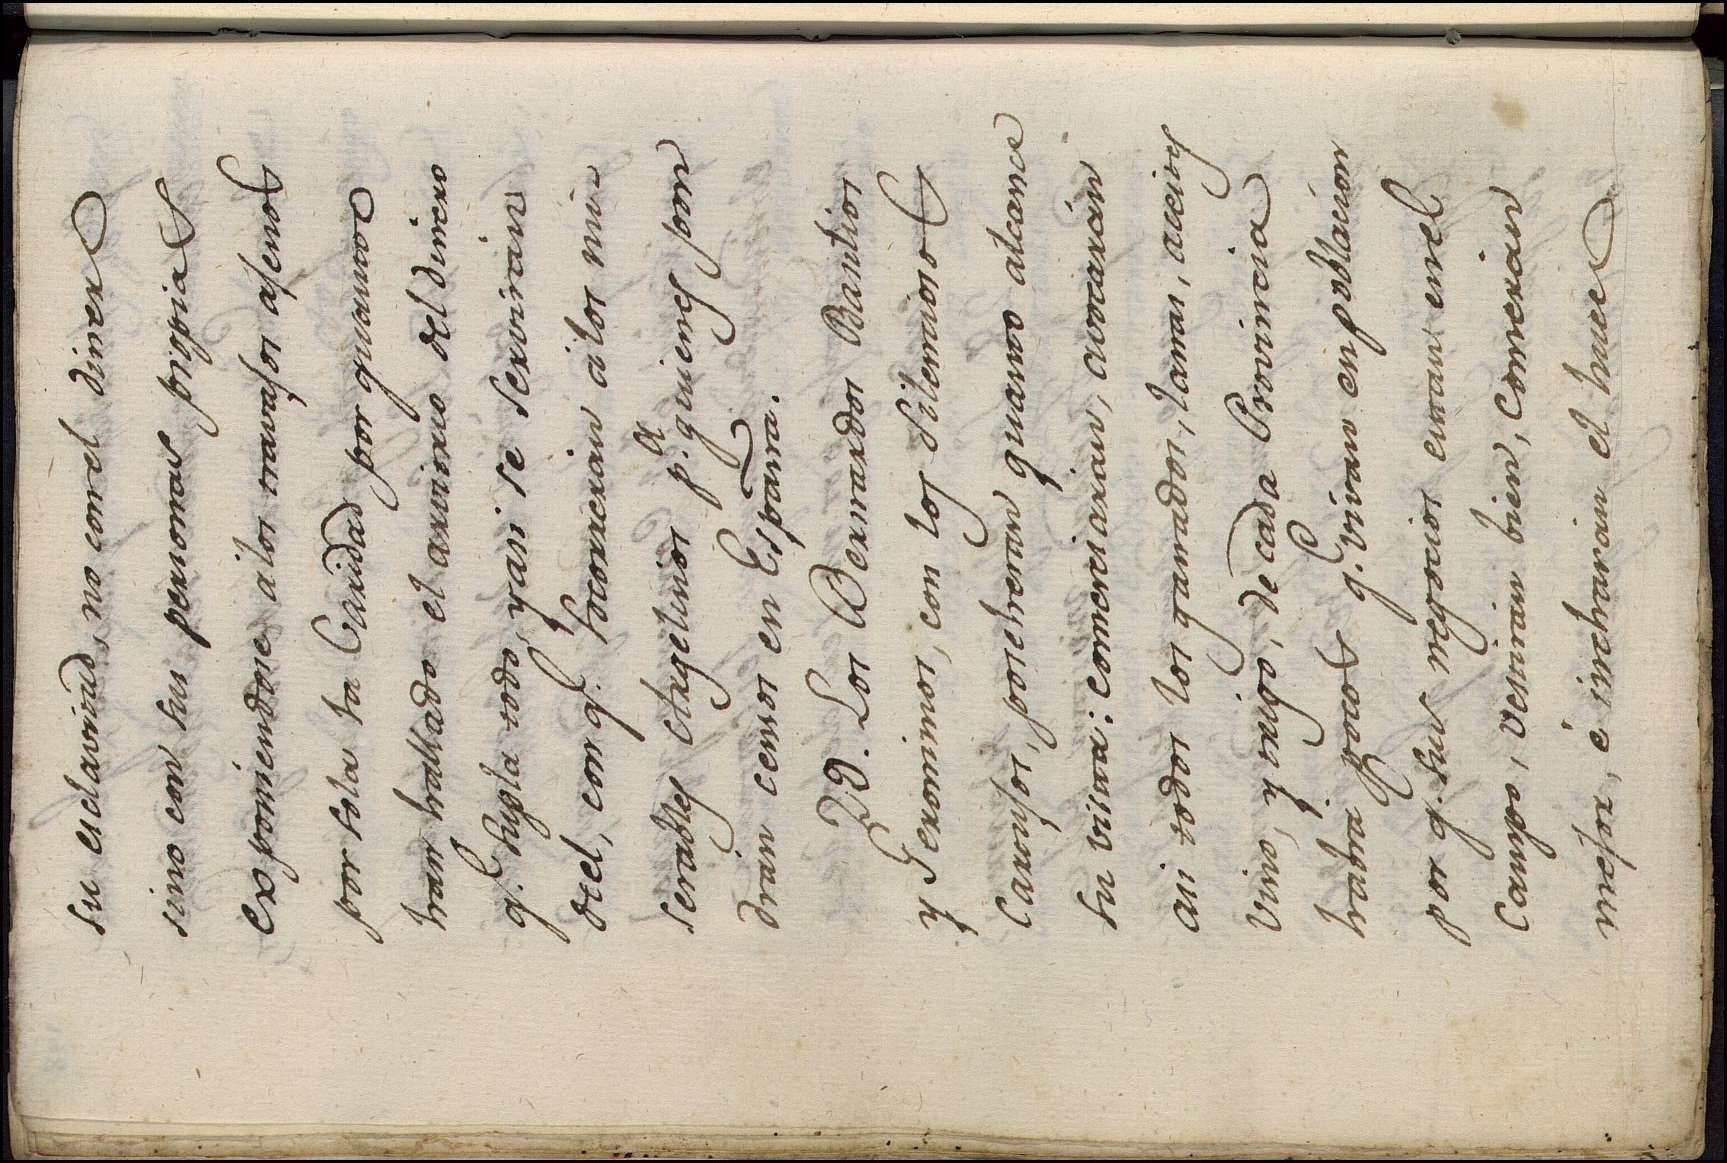 su esclavitud, no con el diner
sino con sus personas propias
exponiendose a los travajos ajenos
por sola la Caridad por quanto
han hallado el arvitrio del dinero
q.e supla todo, y asi se servirán
del, con q.e socorrerán á los mi=
serables Argelinos p.a quienes son
drán censos en España.
29. Los Bernardos Basilios
y Geronimos, con los Silencios
Cartujos, poseheran quanto alcance
su vista: comerciarán, avocarán
asi todos los ganados, lanas, aceites
vino, y trigo, de cada Provincia
habra pocos q.e vivan en poblacion
por q.e sus negocios estan en el
Campo, vestiran bien, comeran
mejor, é inchiran el huce